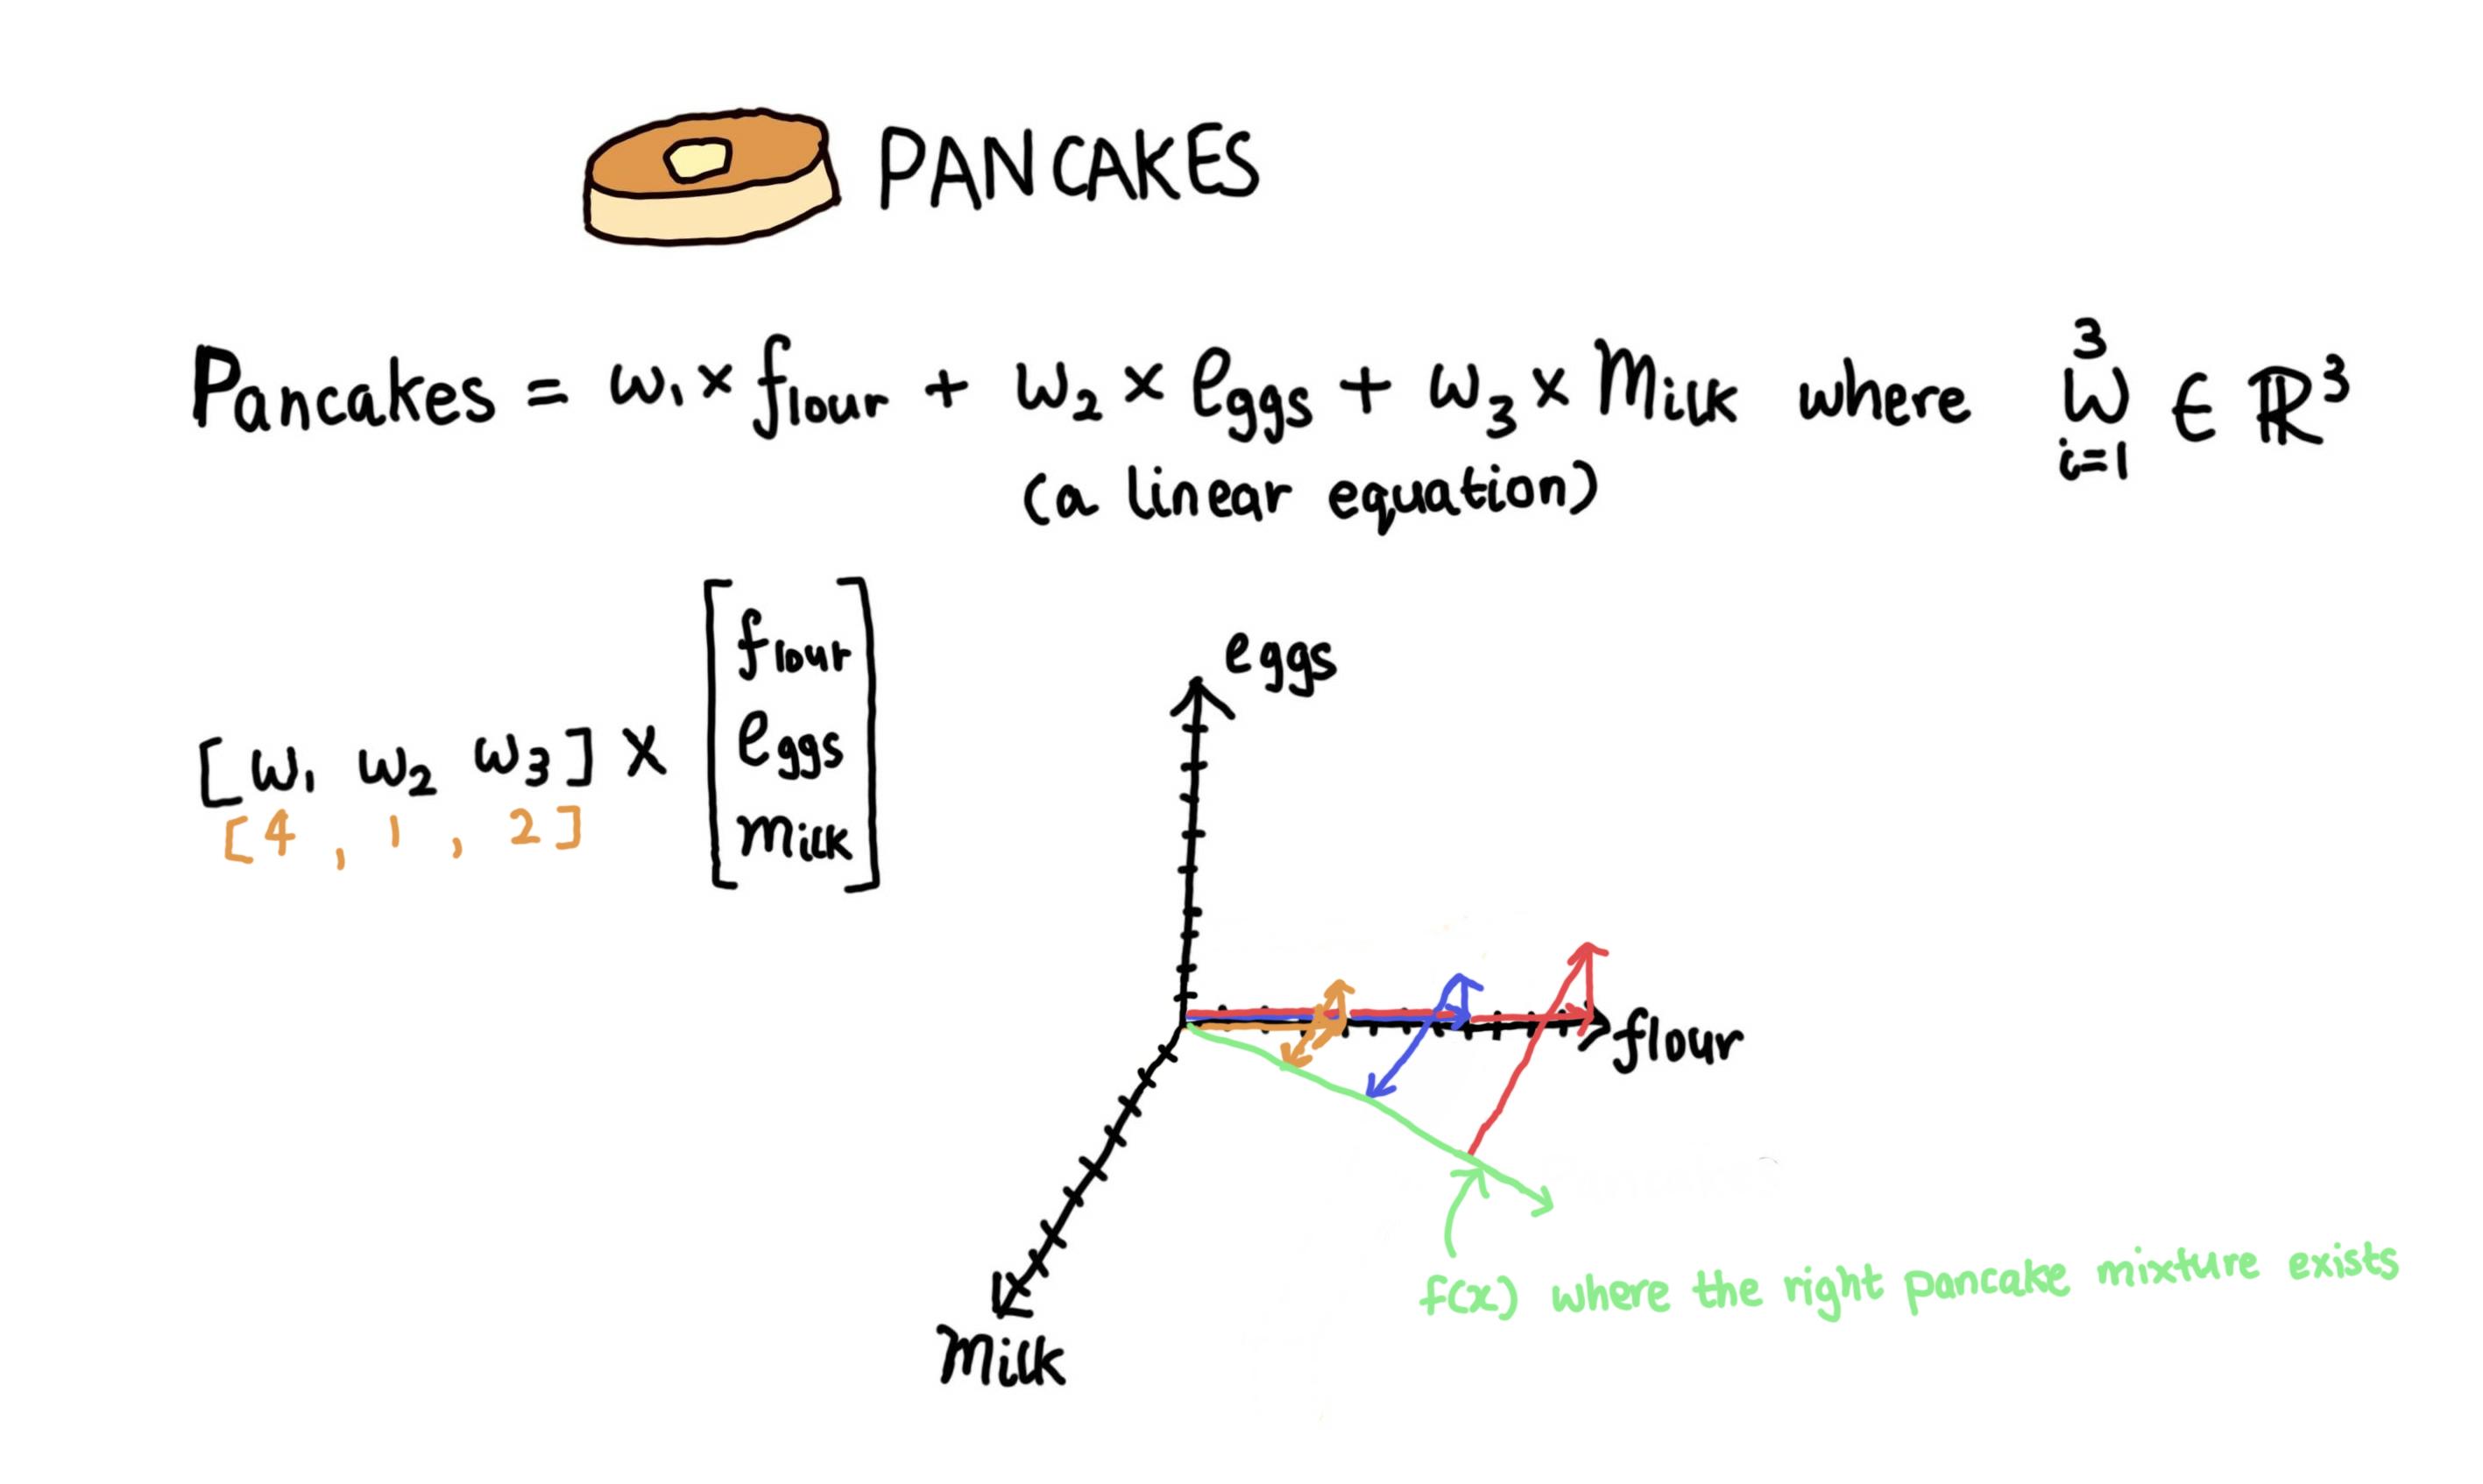 PANCAKES
Pancakes = w₁ × flour + w₂ × eggs + w₃ × Milk where ³W i=1 ∈ ℝ³
(a linear equation)
[w₁ w₂ w₃] × [flour
eggs
milk]
[4 , 1 , 2]
eggs
flour
f(x) where the right pancake mixture exists
Milk